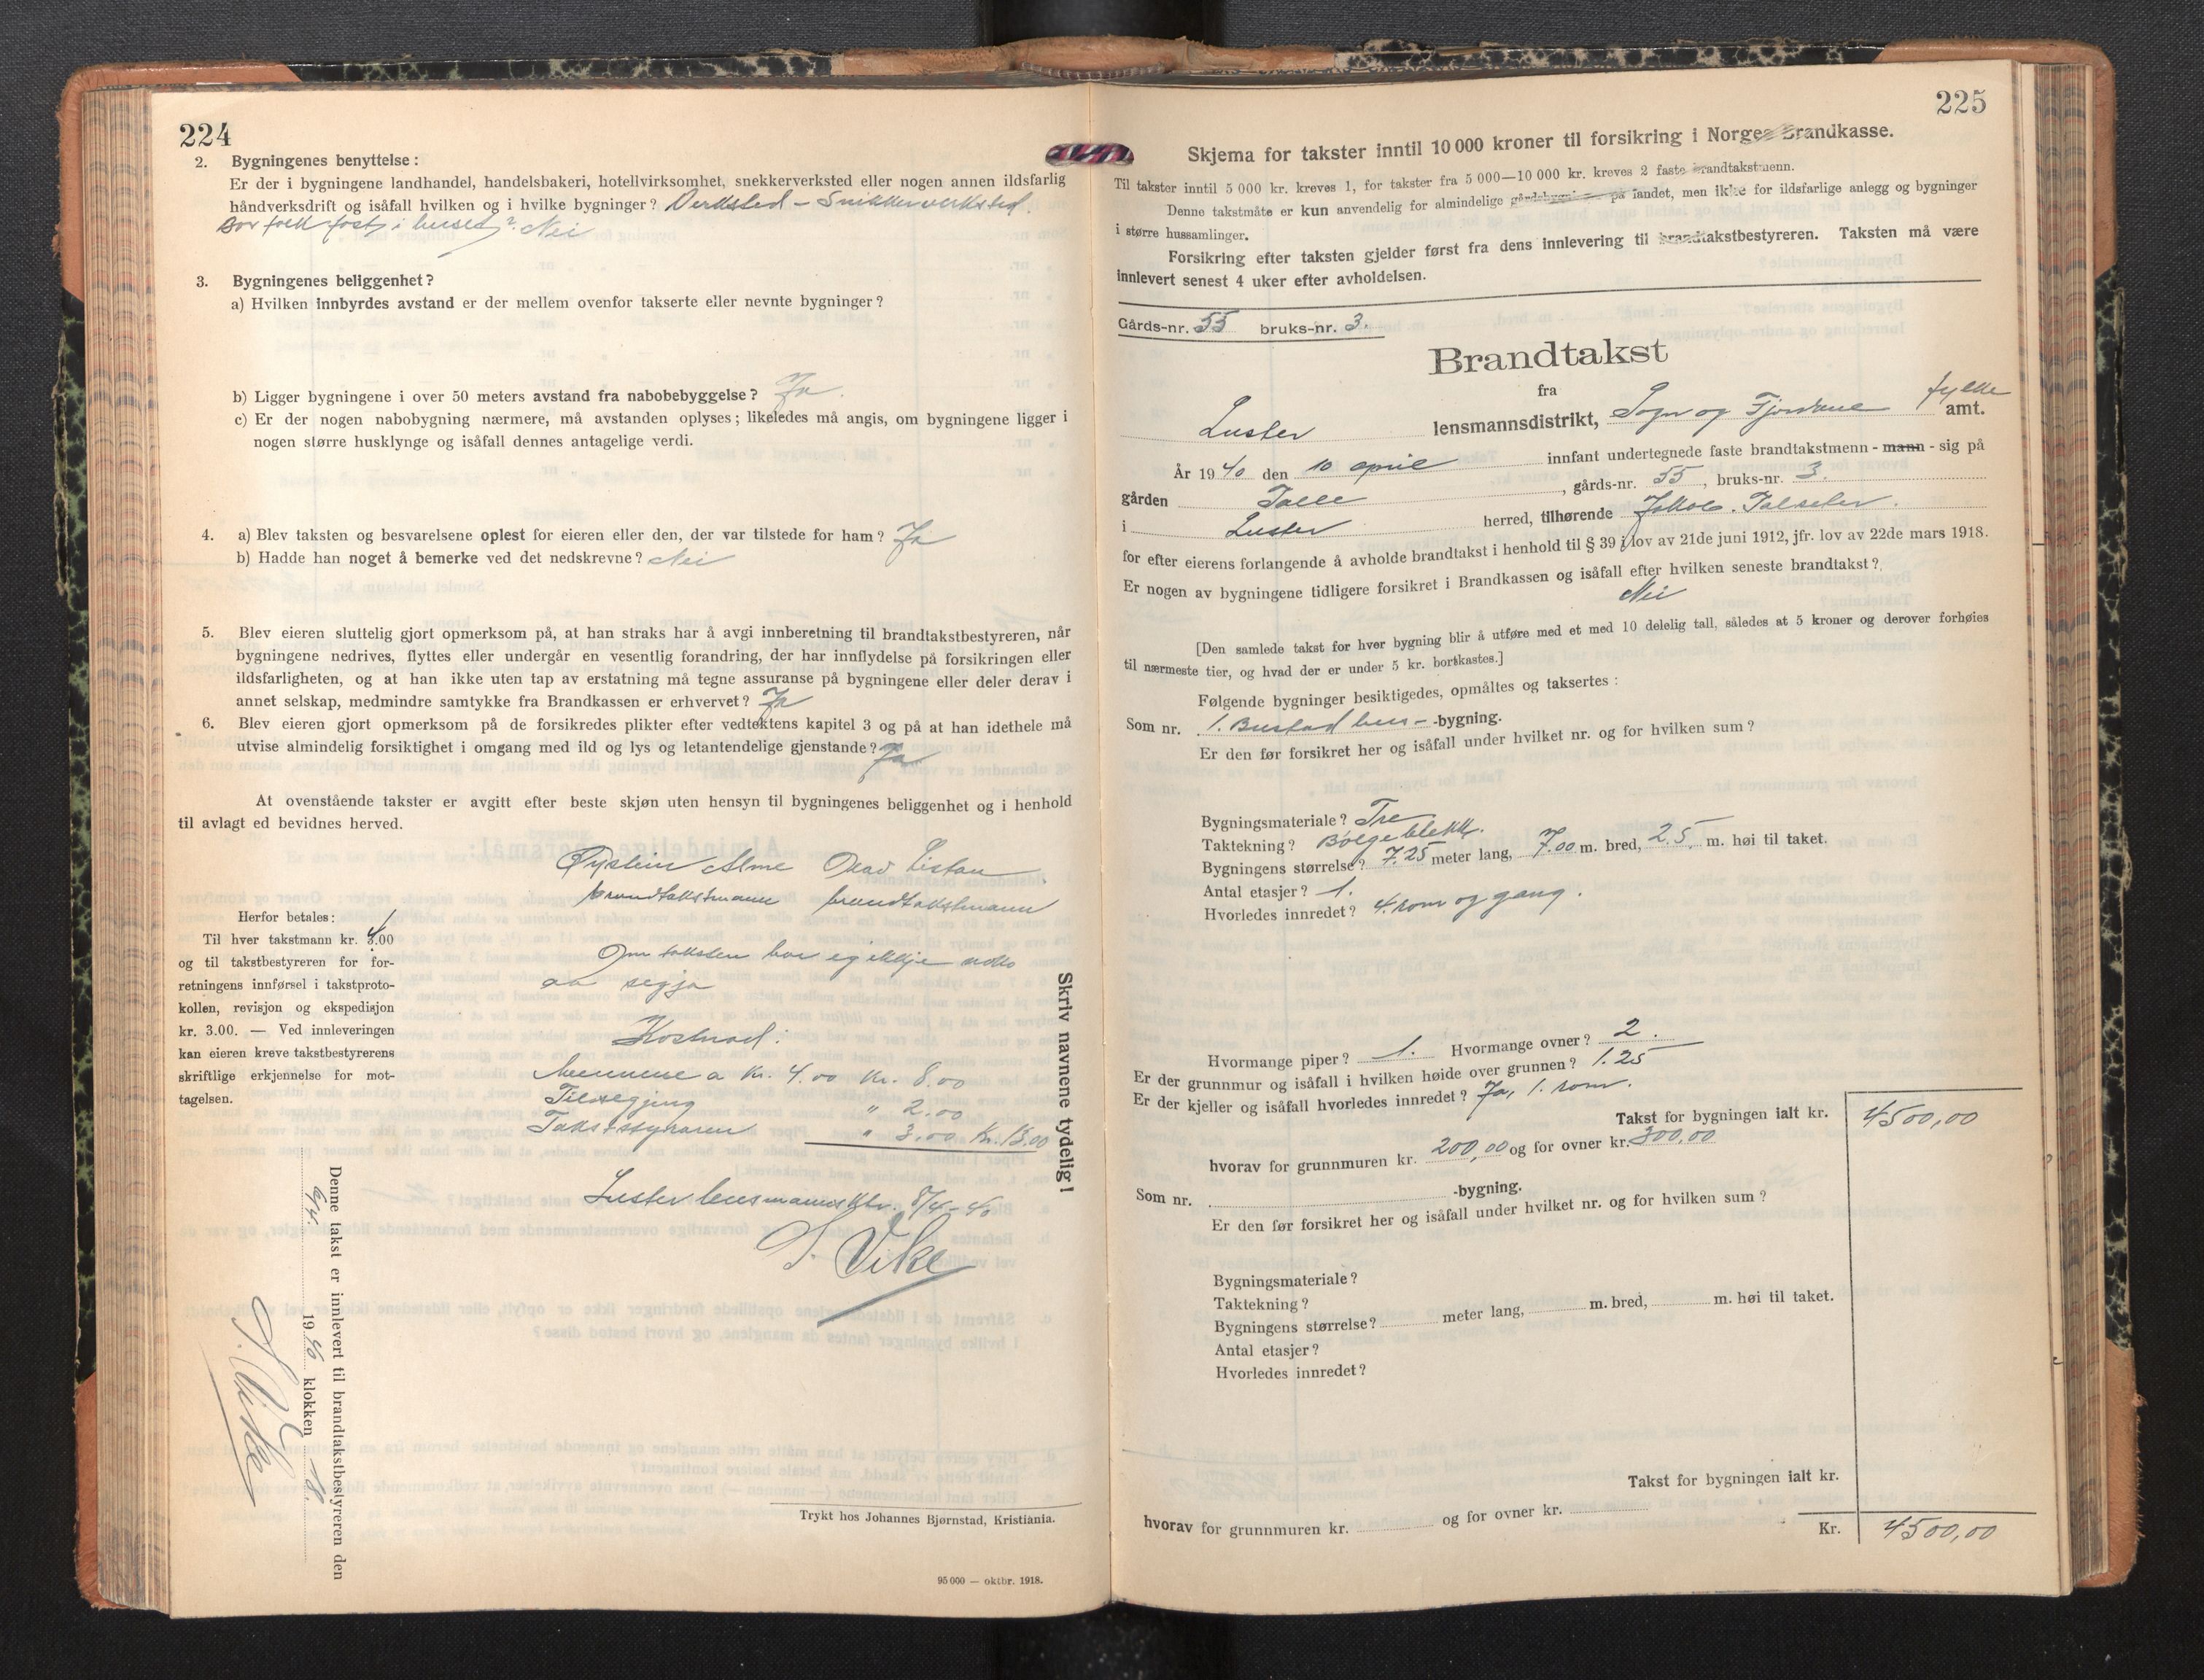 224
2. Bygningenes benyttelse:
Er der i bygningene landhandel, handelsbakeri, hotellvirksomhet, snekkerverksted eller nogen annen ildsfarlig
håndverksdrift og isåfall hvilken og i hvilke bygninger? Verksted – Snikkerverksted.
Bor folk fast i huset? Nei
3. Bygningenes beliggenhet?
a) Hvilken innbyrdes avstand er der mellem ovenfor takserte eller nevnte bygninger?
b) Ligger bygningene i over 50 meters avstand fra nabobebyggelse? Ja.
c) Er der nogen nabobygning nærmere, må avstanden oplyses; likeledes må angis, om bygningene ligger i
nogen større husklynge og isåfall dennes antagelige verdi.
4. a) Blev taksten og besvarelsene oplest for eieren eller den, der var tilstede for ham? Ja
b) Hadde han noget å bemerke ved det nedskrevne? Nei
5. Blev eieren sluttelig gjort opmerksom på, at han straks har å avgi innberetning til brandtakstbestyreren, når
bygningene nedrives, flyttes eller undergår en vesentlig forandring, der har innflydelse på forsikringen eller
ildsfarligheten, og at han ikke uten tap av erstatning må tegne assuranse på bygningene eller deler derav i
annet selskap, medmindre samtykke fra Brandkassen er erhvervet? Ja
6. Blev eieren gjort opmerksom på de forsikredes plikter efter vedtektens kapitel 3 og på at han idethele må
utvise almindelig forsiktighet i omgang med ild og lys og letantendelige gjenstande? Ja
At ovenstående takster er avgitt efter beste skjøn uten hensyn til bygningenes beliggenhet og i henhold
til avlagt ed bevidnes herved.
Øystein Alme Olav
brandtakstmann brandtakstmann
Herfor betales:
Til hver takstmann kr. 4.00
og til takstbestyreren for for-
retningens innførsel i takstproto-
kollen, revisjon og ekspedisjon
kr. 3.00. — Ved innleveringen
kan eieren kreve takstbestyrerens
skriftlige erkjennelse for mot-
tagelsen.
Om taksten har eg ikkje noko
aa segja
Kostnad:
Mennene a Kr. 4.00 Kr. 8.00
Tilsegjing " 2.00
Takststyraren " 3.00 Kr. 13.00
Luster lensmannsktr. 8/4-40
S. Vike
Skriv navnene tydelig!
Denne takst er innlevert til brandtakstbestyreren den
1940 klokken 18.
S. Vike
Trykt hos Johannes Bjørnstad, Kristiania.
95 000 — oktbr. 1918.
225
Skjema for takster inntil 10 000 kroner til forsikring i Norges Brandkasse.
Til takster inntil 5 000 kr. kreves 1, for takster fra 5 000—10 000 kr. kreves 2 faste brandtakstmenn.
Denne takstmåte er kun anvendelig for almindelige gårdsbygninger på landet, men ikke for ildsfarlige anlegg og bygninger
i større hussamlinger.
Forsikring efter taksten gjelder først fra dens innlevering til brandtakstbestyreren. Taksten må være
innlevert senest 4 uker efter avholdelsen.
Gårds-nr. 55 bruks-nr. 3.
Brandtakst
fra
Luster lensmannsdistrikt, Sogn og Fjordane fylke amt.
År 1940 den 10 april innfant undertegnede faste brandtakstmenn - mann - sig på
gården Talle, gårds-nr. 55, bruks-nr. 3.
i Luster herred, tilhørende Jakob Talseter.
for efter eierens forlangende å avholde brandtakst i henhold til § 39 i lov av 21de juni 1912, jfr. lov av 22de mars 1918.
Er nogen av bygningene tidligere forsikret i Brandkassen og isåfall efter hvilken seneste brandtakst?
Nei
[Den samlede takst for hver bygning blir å utføre med et med 10 delelig tall, således at 5 kroner og derover forhøies
til nærmeste tier, og hvad der er under 5 kr. bortkastes.]
Følgende bygninger besiktigedes, opmåltes og taksertes:
Som nr. 1. Bustadhus- -bygning.
Er den før forsikret her og isåfall under hvilket nr. og for hvilken sum?
Bygningsmateriale? Tre
Taktekning? Bølgeblekk.
Bygningens størrelse? 7.25 meter lang, 7.00 m. bred, 2.5. m. høi til taket.
Antal etasjer? 1.
Hvorledes innredet? 4. rom og gang.
Hvormange piper? 1. Hvormange ovner? 2.
Er der grunnmur og isåfall i hvilken høide over grunnen? 1.25
Er der kjeller og isåfall hvorledes innredet? Ja, 1. rom.
Takst for bygningen ialt kr. 4500,00
hvorav for grunnmuren kr. 200,00 og for ovner kr. 300,00
Som nr. -bygning.
Er den før forsikret her og isåfall under hvilket nr. og for hvilken sum?
Bygningsmateriale?
Taktekning?
Bygningens størrelse? meter lang, m. bred, m. høi til taket.
Antal etasjer?
Hvorledes innredet?
Takst for bygningen ialt kr.
hvorav for grunnmuren kr. og for ovner kr.
Kr. 4500,00